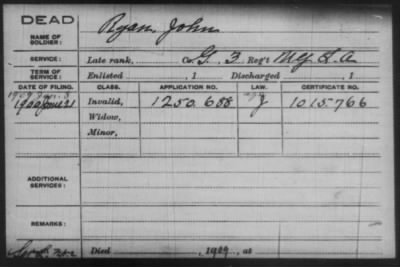 DEAD
NAME OF SOLDIER: Ryan, John
SERVICE: Late rank, Co. G, 3 Reg't N.Y. L. A.
TERM OF SERVICE: Enlisted , 1 Discharged , 1
DATE OF FILING. CLASS. APPLICATION NO. LAW. CERTIFICATE NO.
1900 June 21 Invalid, 1250,688 J 1015,766
Widow,
Minor,
ADDITIONAL SERVICES:
REMARKS:
Died , 1909, at